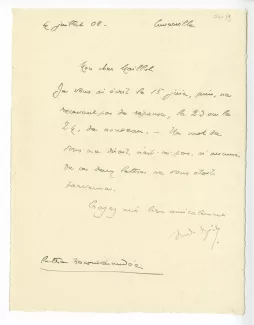 4 juillet 08. Cuverville
Mon cher Maillol
Je vous ai écrit le 15 juin, puis, ne
recevant pas de réponse, le 23 ou le
24, de nouveau. — Un mot de
vous me dirait, n'est-ce pas, si aucune
de ces deux lettres ne vous était
parvenue.
Croyez moi bien amicalement
André Gide
Lettre recommandée